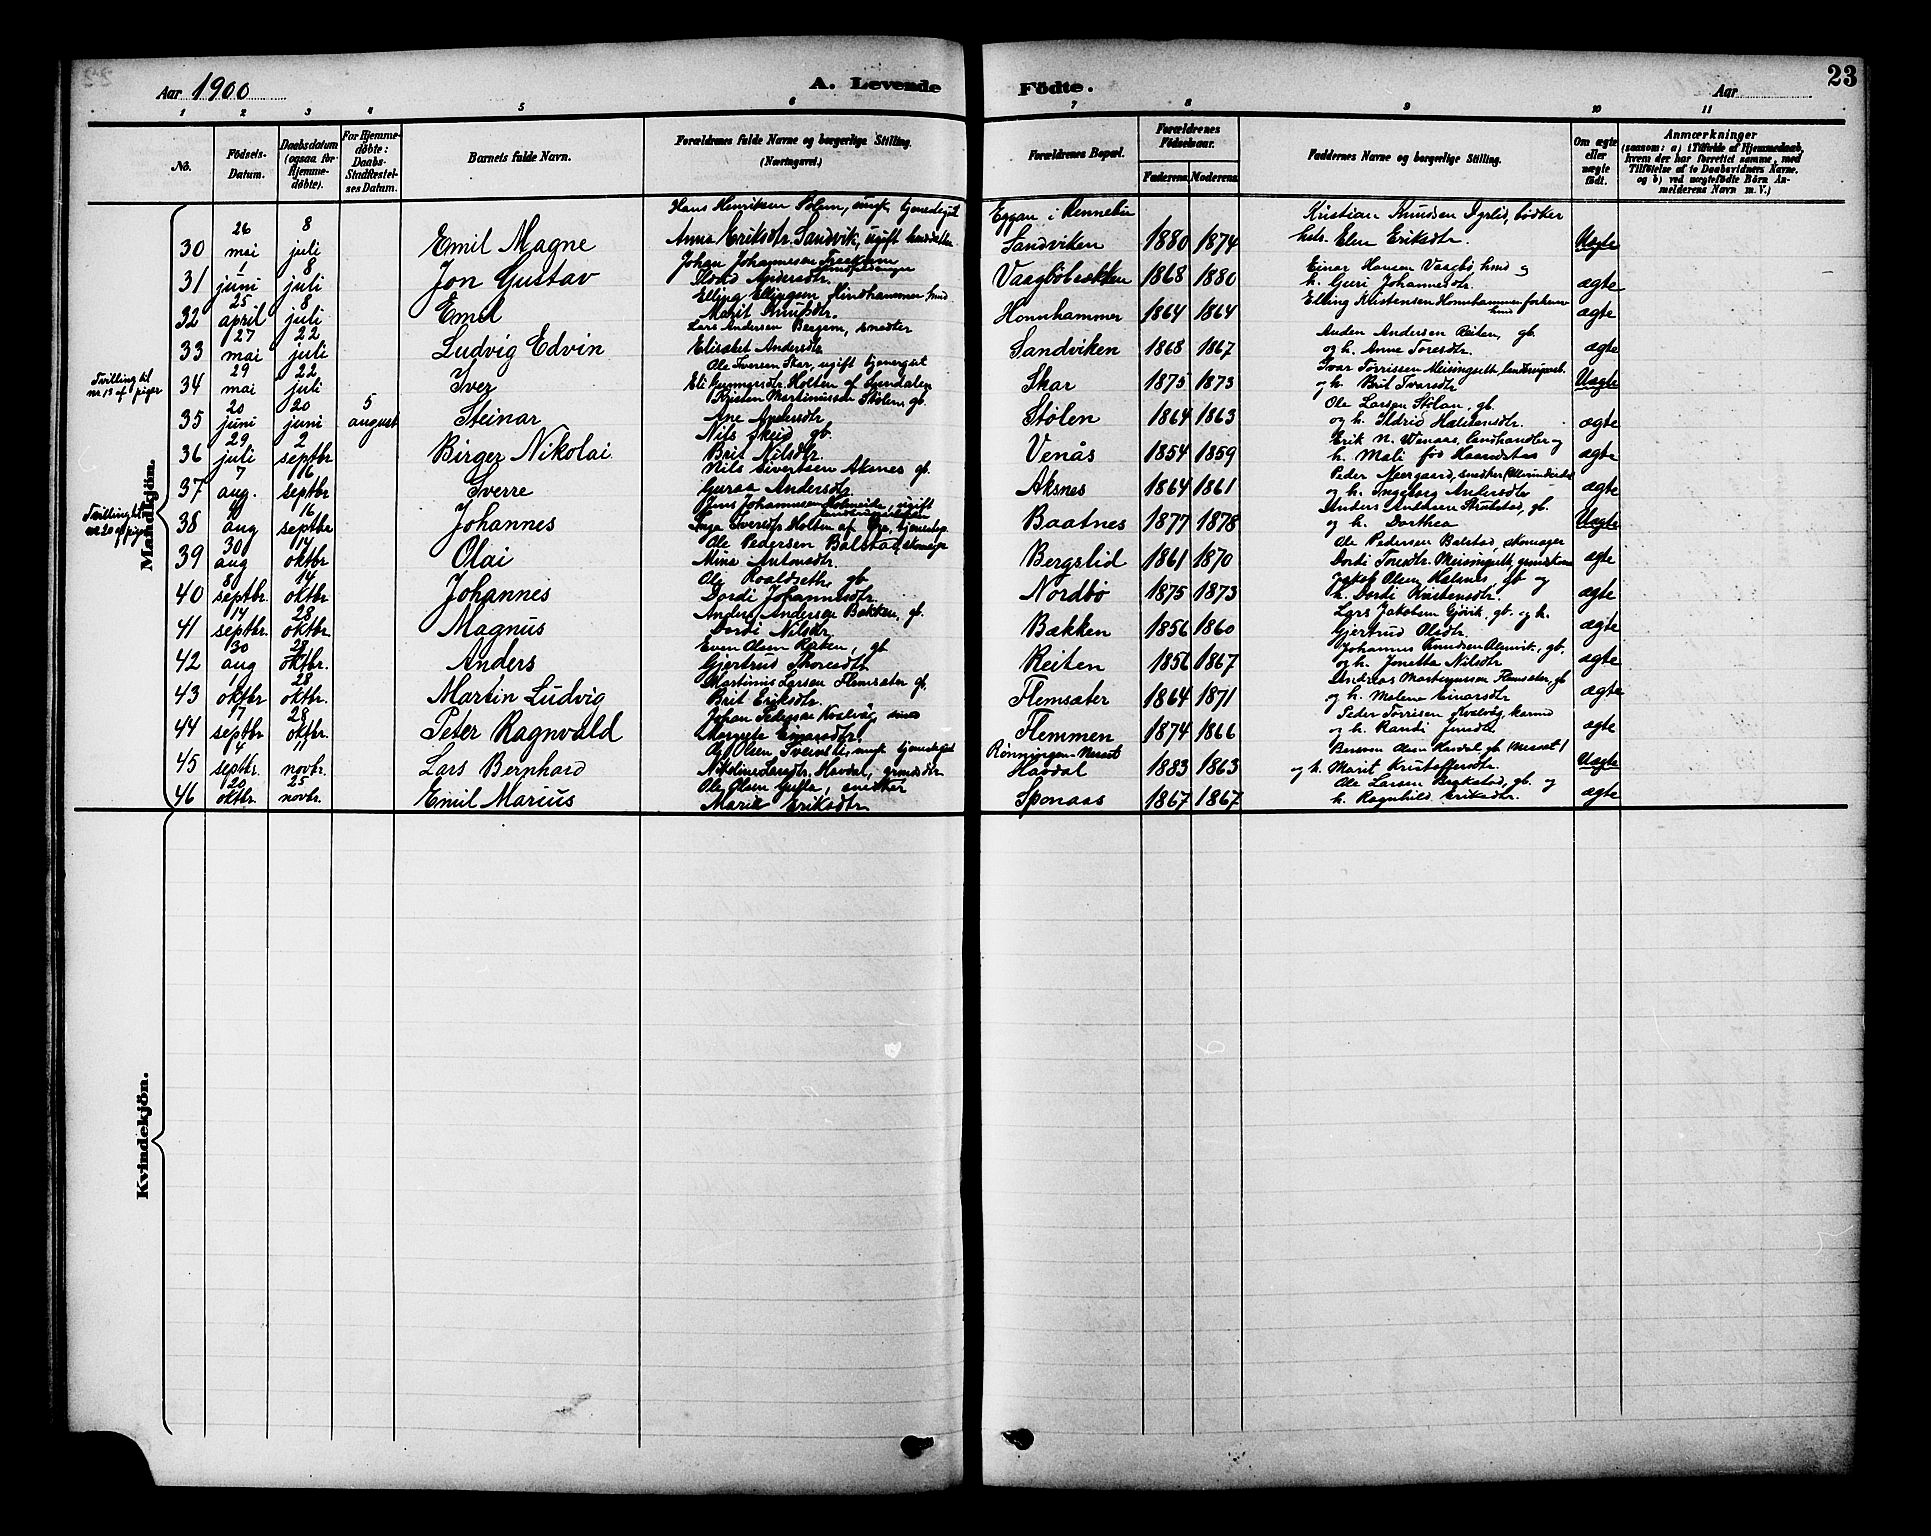 Aar 1900
A. Levende Födte.
Aar
23
1 2 3 4 5 6 7 8 9 10 11
No.
Födsels-Datum.
Daabsdatum (ogsaa for Hjemmedøbte).
For Hjemmedøbte: Daabs-Stadfæstelses Datum.
Barnets fulde Navn.
Forældrenes fulde Navne og borgerlige Stilling. (Næringsvei.)
Forældrenes Bopæl.
Forældrenes Fødselsaar.
Faderens. Moderens.
Faddernes Navne og borgerlige Stilling.
Om ægte eller uægte født.
Anmærkninger
(saasom: a) i Tilfælde af Hjemmedaab, hvem der har forrettet samme, med Tilföielse af to Daabsvidners Navne, og b) ved uægtefødte Börn Anmelderens Navn m. V.)
Mandkjön.
30 26 mai 8 juli Emil Magne Hans Henriksen Solem, ungk. tjenestegut Anna Eriksdtr. Sandvik, ugift Eggan i Rennebu Sandviken 1880 1874 Kristian Knudsen Dyrlid, bødker Elen Eriksdtr. Uægte
31 1 juni 8 juli Jon Gustav Johan Johannesen Andersdtr. 1868 1880 Einar Hansen Vaagbø, og h. Guri Johannesdtr. ægte
32 25 april 8 juli Emil Elling Ellingsen Hindhammer Marit Knudsdtr. Honnhammer 1864 1864 Elling Kristensen Honnhammer ægte
33 27 mai 22 juli Ludvig Edvin Lars Andersen Bergem, snedker Elisabet Andersdtr. Sandviken 1868 1867 Anden Andersen Reiten, gb. og h. Anne Toresdtr. ægte
Tvilling til nr 13 af piger
34 29 mai 22 juli Iver Ole Iversen Skar, ugift Eli Holten af Sundalen Skar 1875 1873 Ivar Torrissen Meisingseth og h. Brit Ivarsdtr. Uægte
35 20 juni 20 juni 5 august Steinar Kristen Martinussen Stølen, gb. Ane Andersdtr. Stølen 1864 1863 Ole Larsen Stølan, gb. og h. Ildrid Halstensdtr. ægte
36 29 juli 2 septbr Birger Nikolai Nils Skeid gb. Brit Nilsdtr. Venås 1854 1859 Erik N. Wenaas, landhandler og h. Mali ægte
37 7 aug. 16 septbr Sverre Nils Sivertsen Aksnes gb. Guraa Andersdtr. Aksnes 1864 1861 Peder Neergaard, snedker og h. Ingeborg Andersdtr ægte
Tvilling til nr 20 af piger
38 aug 16 septbr Johannes Jens Johannesen ugift Inga Iversdtr Holten af Baatnes 1877 1878 Anders Andersen gb. og h. Dorthea Uægte
39 30 aug 14 oktbr Olai Ole Pedersen Bølstad, skomager Mina Antonsdtr. Bergslid 1861 1870 Ole Pedersen Bølstad, skomager Dordi Toresdtr. Meisingseth ægte
40 8 septbr. 14 oktbr. Johannes Ole Roaldseth, gb. Dordi Johannesdtr. Nordbø 1875 1873 Jakob Olsen Halsnes, gb og h. Dordi Kristensdtr. ægte
41 14 septbr. 28 oktbr. Magnus Anders Andersen Bakken, gb. Dordi Nilsdtr. Bækken 1856 1860 Lars Jakobsen Gjøvik, gb. og h. Gjertrud Olsdtr. ægte
42 30 aug 28 oktbr. Anders Even Olsen Reiten, gb Gjertrud Thoresdtr. Reiten 1856 1867 Johannes Knudsen gb. og h. Jonetta Nilsdtr ægte
43 1 oktbr 28 oktbr. Martin Ludvig Martinus Larsen Flemsæter gb. Brit Eriksdtr. Flemsæter 1864 1871 Flemsæter, gb og h. Malene Einarsdtr ægte
44 17 septbr 28 oktbr. Peter Ragnvald Johan Pedersen Kvalvåg, Einarsdtr. Flemmen 1874 1866 Peder Torrisen Kvalvåg, og h. Randi ægte
45 4 septbr. 11 novbr. Lars Bernhard Ole Olsen ungk. tjenestegut Nikoline Larsdtr. Havdal, Rønningen Nesset Havdal 1883 1863 Olsen Havdal gb. (Nesset) og h. Marit Kristoffersdtr. Uægte
46 20 oktbr. 25 novbr. Emil Marius Ole Olsen snedker Marie Eriksdtr. Sponaas 1867 1867 Ole Larsen Brakstad, gb. og h. Ragnhild Eriksdtr. ægte
Kvindekjön.